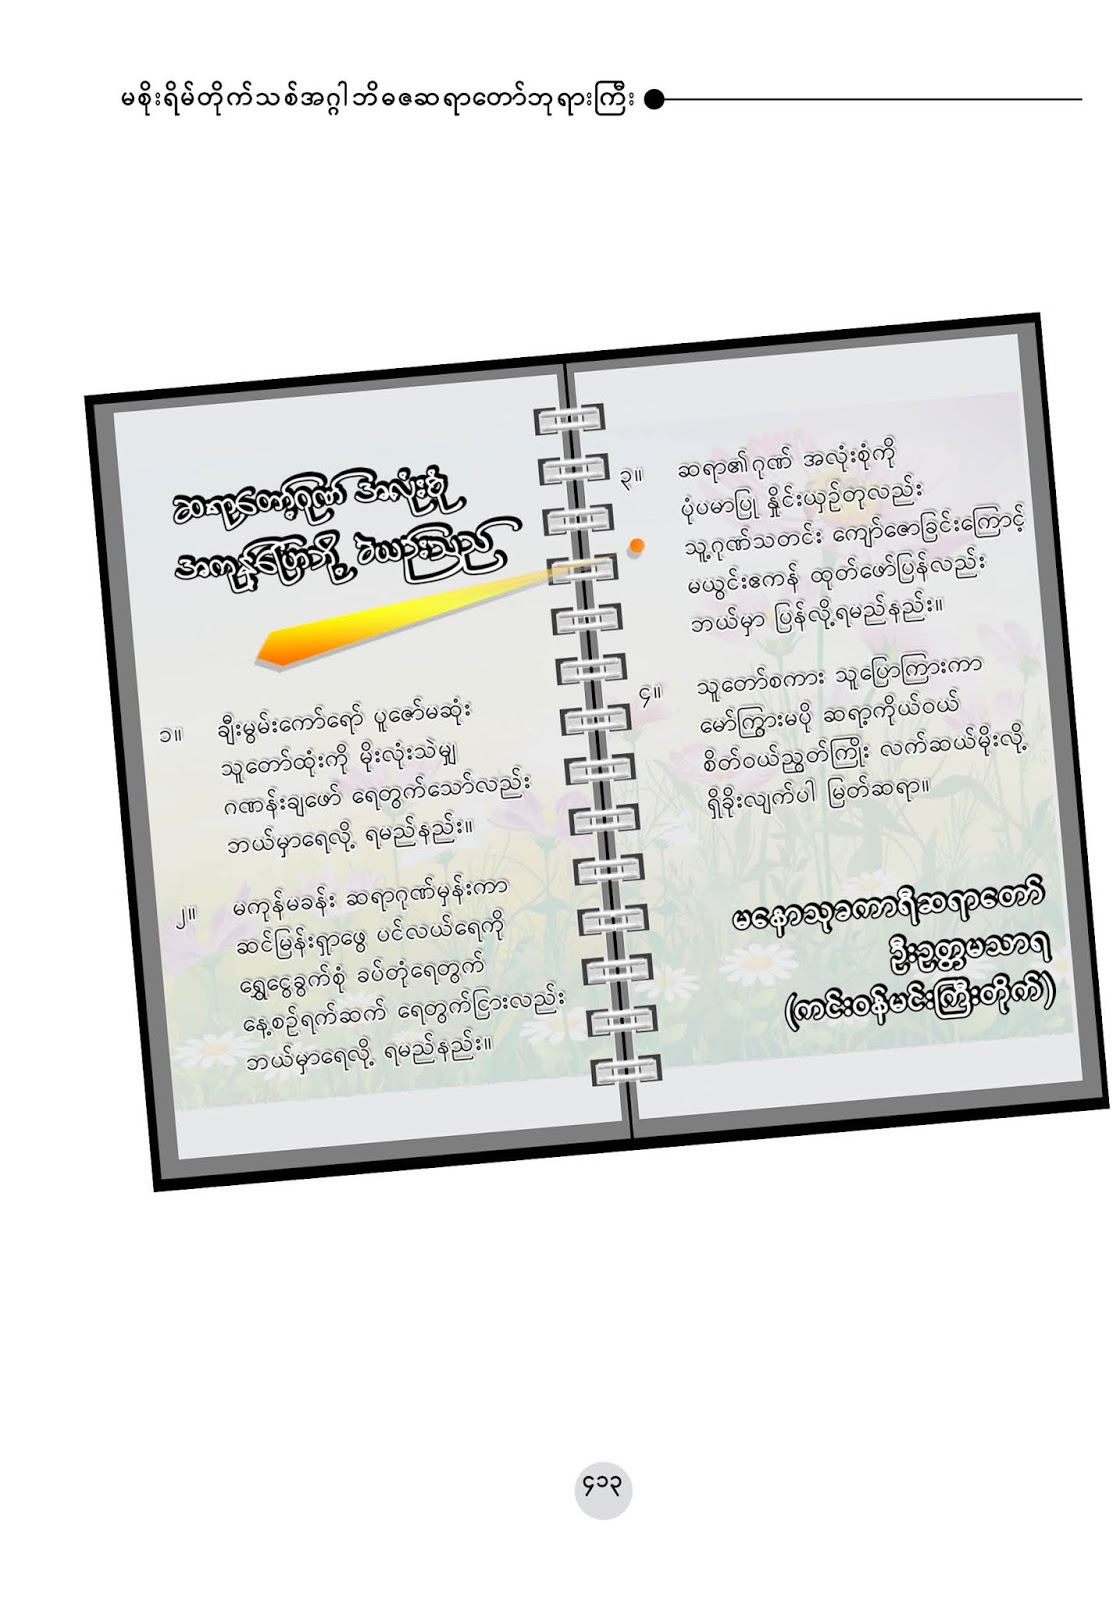 မစိုးရိမ်တိုက်သစ်အဂ္ဂါဘိဓဇဆရာတော်ဘုရားကြီး
ဆရာတော့ဂုဏ် အလုံးစုံ
အကုန်ပြောဘို့ ခဲယဉ်းသည်
၁။ ချီးမွမ်းကော်ရော် ပူဇော်မဆုံး
သူတော်ထုံးကို မိုးလုံးသဲမျှ
ဂဏန်းချဖော် ရေတွက်သော်လည်း
ဘယ်မှာရေလို့ ရမည်နည်း။
၂။ မကုန်မခန်း ဆရာဂုဏ်မှန်းကာ
ဆင်မြန်းရှာဖွေ ပင်လယ်ရေကို
ရွှေငွေခွက်စုံ ခပ်တုံရေတွက်
နေ့စဉ်ရက်ဆက် ရေတွက်ငြားလည်း
ဘယ်မှာရေလို့ ရမည်နည်း။
၃။ ဆရာ၏ဂုဏ် အလုံးစုံကို
ပုံပမာပြု နှိုင်းယှဉ်တုလည်း
သူ့ဂုဏ်သတင်း ကျော်ဇောခြင်းကြောင့်
မယွင်းဧကန် ထုတ်ဖော်ပြန်လည်း
ဘယ်မှာ ပြန်လို့ရမည်နည်း။
၄။ သူတော်စကား သူပြောကြားကာ
မော်ကြွားမပို ဆရာ့ကိုယ်ဝယ်
စိတ်ဝယ်ညွတ်ကြိုး လက်ဆယ်မိုးလို့
ရှိခိုးလျက်ပါ မြတ်ဆရာ။
မနောသုခကာရီဆရာတော်
ဦးဥတ္တမသာရ
(ကင်းဝန်မင်းကြီးတိုက်)
၄၁၃